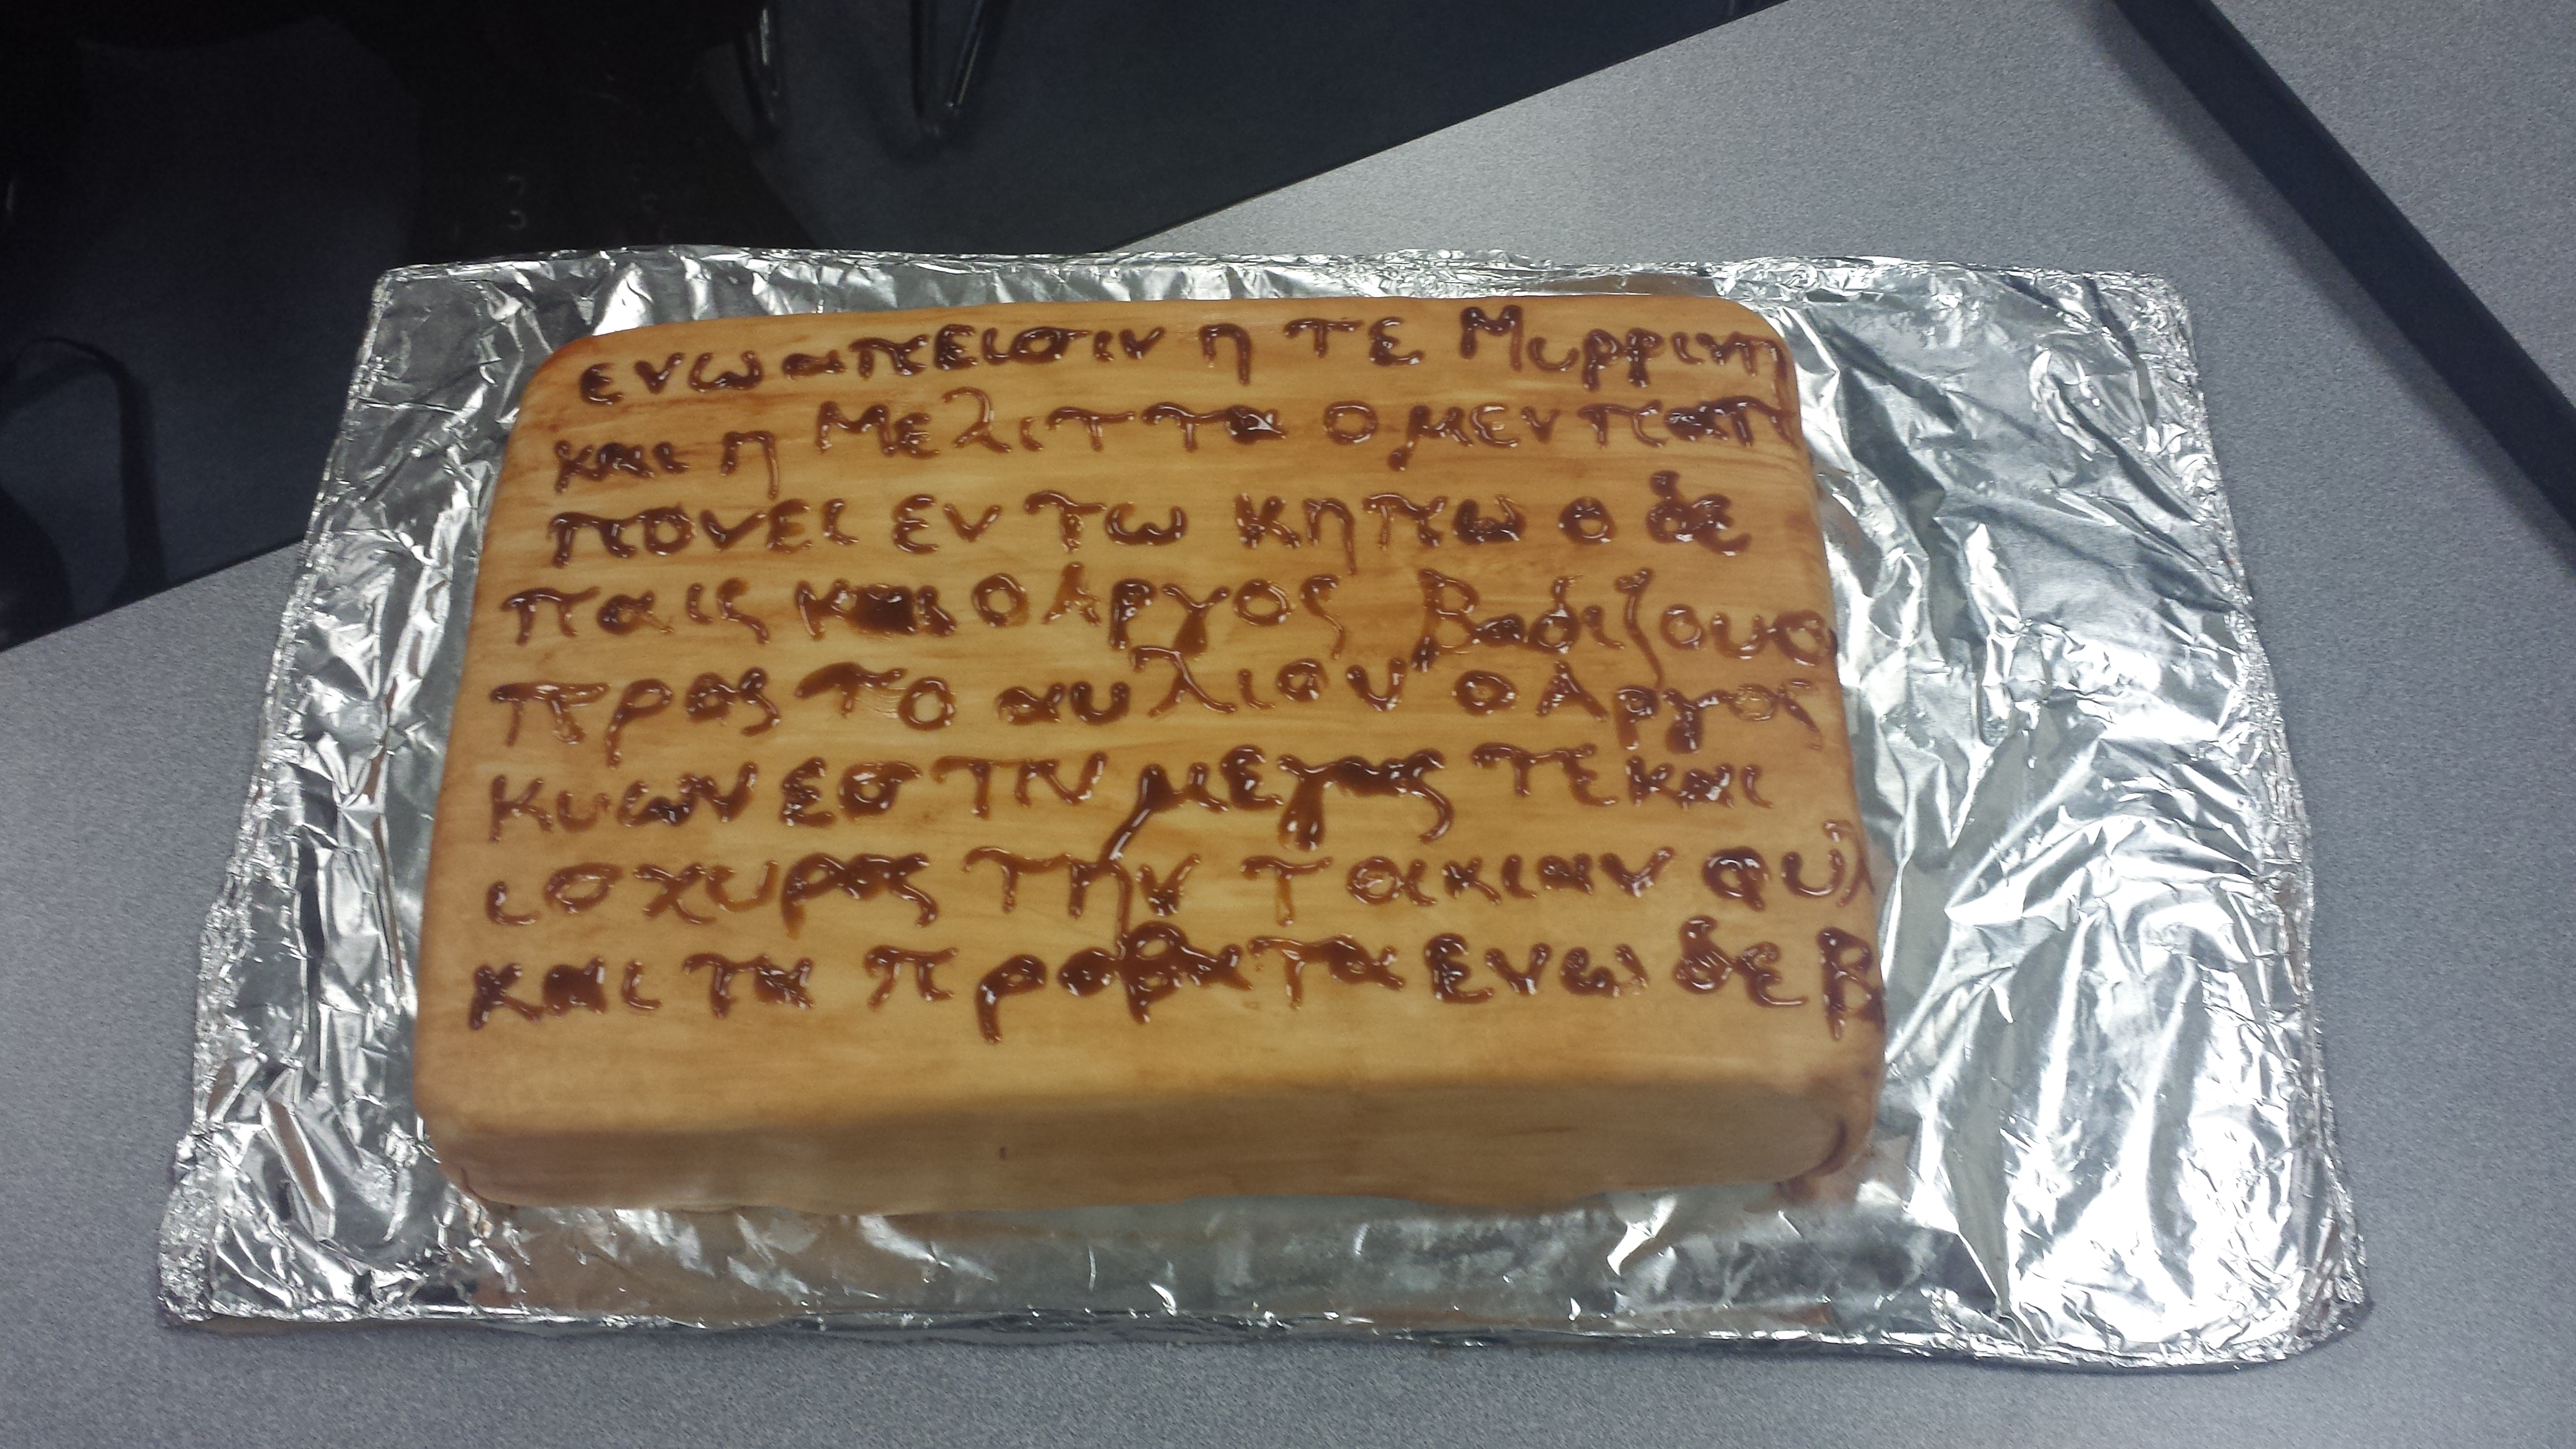 ενω απεισιν η τε Μυρρινη
και η Μελιττα ο μεν παπ
πονει εν τω κηπω ο δε
παις και ο Αργος βαδιζουσ
προς το αυλιον ο Αργος
κυων εστιν μεγας τε και
ισχυρος την τ οικιαν φυλ
και τα προβατα ενω δε β